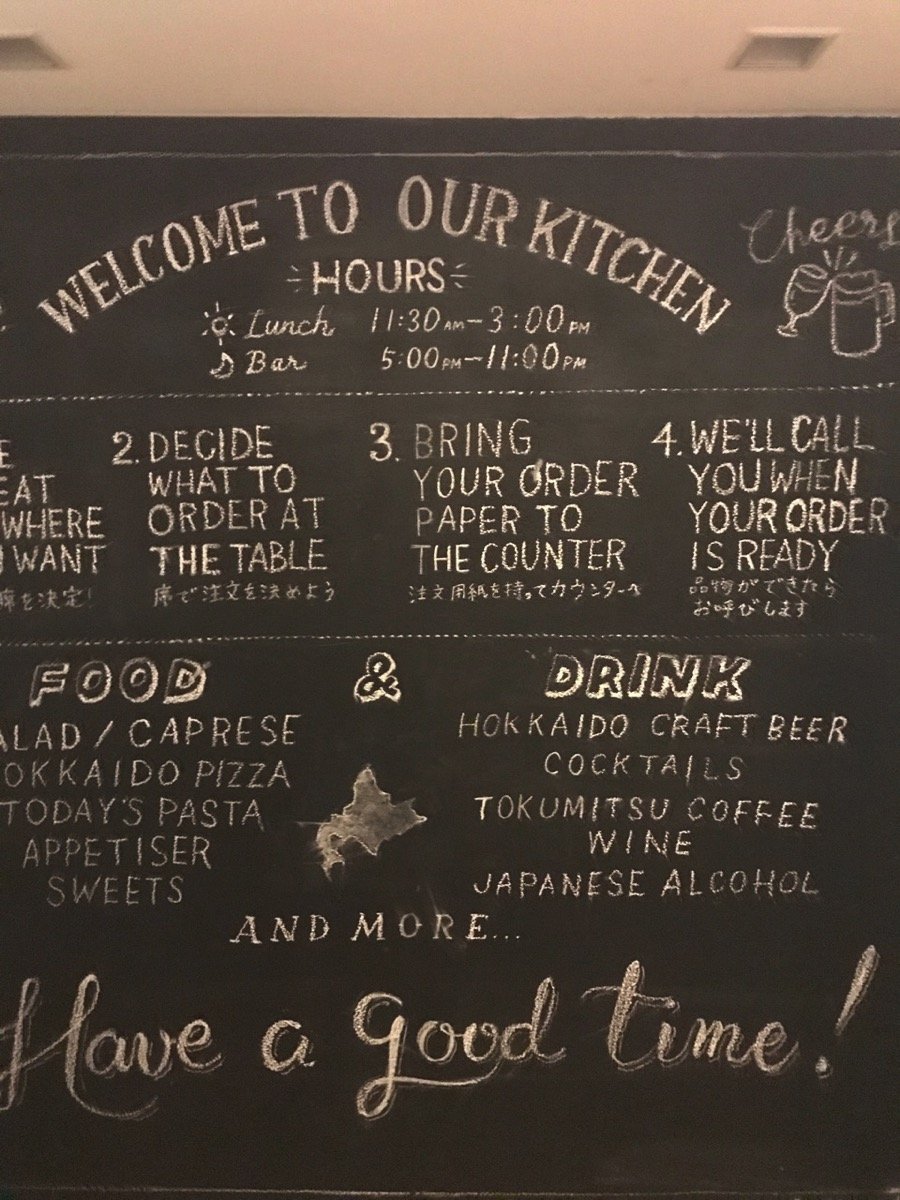 WELCOME TO OUR KITCHEN
Cheers
HOURS
Lunch 11:30 AM-3:00 PM
Bar 5:00 PM-11:00 PM
2. DECIDE
WHAT TO
ORDER AT
THE TABLE
席で注文を決めよう
3. BRING
YOUR ORDER
PAPER TO
THE COUNTER
注文用紙を持ってカウンターへ
4. WE'LL CALL
YOU WHEN
YOUR ORDER
IS READY
品物ができたら
お呼びします
EAT
WHERE
WANT
席を決定!
FOOD & DRINK
ALAD / CAPRESE
OKKAIDO PIZZA
TODAY'S PASTA
APPETISER
SWEETS
HOKKAIDO CRAFT BEER
COCKTAILS
TOKUMITSU COFFEE
WINE
JAPANESE ALCOHOL
AND MORE...
Have a good time!